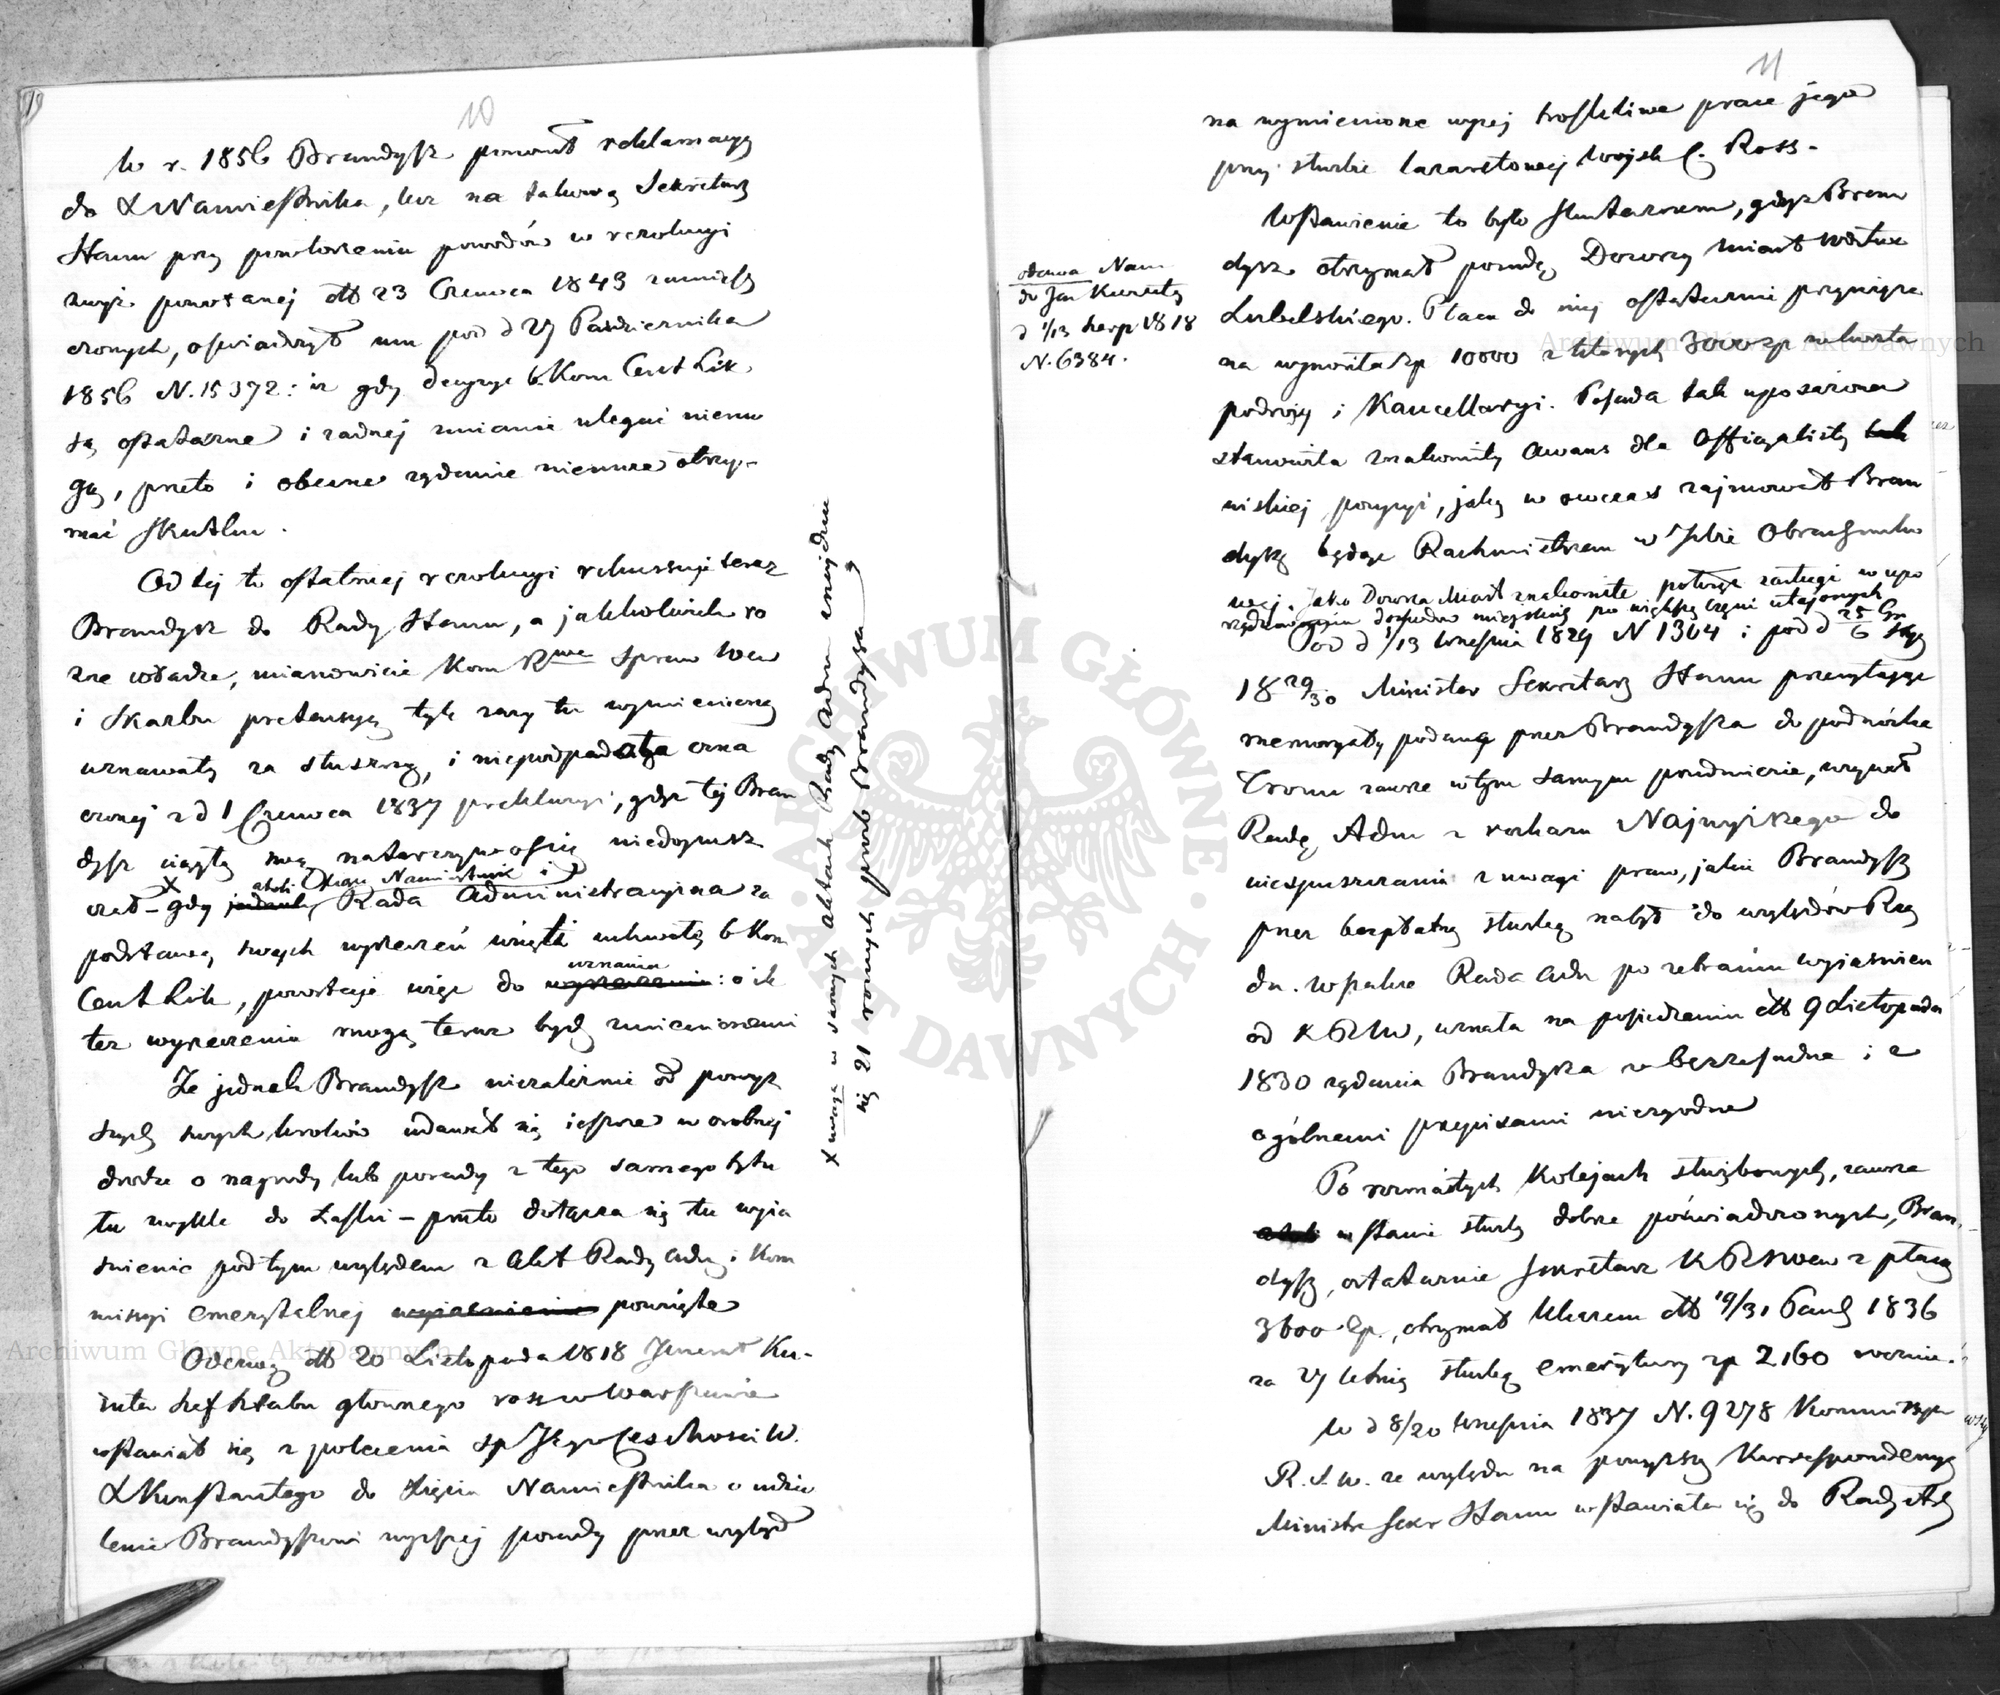 10
W r. 1856 Brandysz ponowił reklamacyą
do X Namiestnika, lecz na takową Sekretarz
Stanu przy powtórzeniu powodów w rezolucyi
wyż powołanej dtt 23 Czerwca 1843 zamiesz
czonych, oświadczył mu pod d 27 Października
1856 N. 15372: iż gdy decyzye b. Kom Cent Lik.
są ostateczne i żadnej zmianie uledz nie mo
gą, przeto i obecne żądanie nie może otrzy-
mać skutku.
Od tej to ostatniej rezolucyi rekursuje teraz
Brandysz do Rady Stanu, a jakkolwiek ró
żne władze, mianowicie Kom Rwa Spraw Wew
i Skarbu pretensyą tyle razy tu wymienioną
uznawały za słuszną, i niepodpadałą ozna
czonej z d 1 Czerwca 1837 prekluzyi, gdyż tej Bran
dysz ciągłą swą natarczywością niedopusz
czał – gdy jednak atoli Xiąże Namiestnik i Rada Administracyjna za
podstawę swych wyrzeczeń wzięła uchwałę b Kom
Cent Lik, pozostaje więc do wyrzeczenia uznania: o ile
też wyrzeczenia mogą teraz być zmienionemi
Że jednak Brandysz niezależnie od powyż
szych swych kroków udawał się jeszcze w osobnej
drodze o nagrodę lub posadę z tego samego tytu
łu zwykle do Łaski – przeto dołącza się tu wyja
śnienie pod tym względem z Akt Rady Adm i Kom
missyi emerytalnej wyjaśnienie powzięte
Odezwą dtt 20 Listopada 1818 Jenerał Ku-
ruta Szef Sztabu głównego ross w Warszawie
wstawiał się z polecenia Sp Jego Ces Mości W.
X Konstantego do Xięcia Namiestnika o udzie
lenie Brandyszowi wyższej posady przez wzgląd
x uwaga w samych aktach Rady Adm znajduje
się 21 rożnych próśb Brandysza
11
na wymienione wyżej troskliwe prace jego
przy służbie lazaretowej Wojsk C. Ross.
odezwa Nam
do Jen Kuruty
d 1/13 Sierp 1818
N. 6384.
Wstawienie to było skutecznem, gdyż Bran
dysz otrzymał posadę Dozorcy miast Wdztwa
Lubelskiego. Płaca do niej ostatecznie przywiąza
na wynosiła zp 10000 z których 3000 zp na koszta
podroży i Kancellaryi. Posada tak uposażona
stanowiła znakomity awans dla Officyalisty tak
niskiej pozycyi, jaką w owczas zajmował Bran
dysz będąc Rachmistrzem w Izbie Obrachunko
wej. Jako Dozorca Miast znakomite położył zasługi w upo
rządkowaniu dochodów miejskich po większej części utajonych
Pod d 1/13 Września 1829 N 1364 i pod d 25/6 Gr/Stycz
18 29/30 Minister Sekretarz Stanu przesyłając
memoryały podane przez Brandysza do podnóżka
Tronu zawsze w tym samym przedmiocie, wzywał
Radę Adm z rozkazu Najwyższego do
niespuszczania z uwagi praw, jakie Brandysz
przez bezpłatną służbę nabył do względów Rzą
du. Wszakże Rada Adm po zebraniu wyjaśnien
od KRSW, uznała na posiedzeniu dtt 9 Listopada
1830 żądania Brandysza za bezzasadne i z
ogólnemi przepisami niezgodne
Po rozmaitych kolejach służbowych, zawsze
w stanie służby dobrze poświadczonych, Bran
dysz, ostatecznie sekretarz KRSWew z płacą
3600 zp., otrzymał Ukazem dtt 19/31 Paźdz 1836
za 27 letnią służbę emeryturę zp 2160 rocznie.
W d 8/20 Września 1837 N. 9278 Kommissya
R. S. W. ze względu na powyższą Korrespondencyą
Ministra Sekr Stanu wstawiała się do Rady Ad